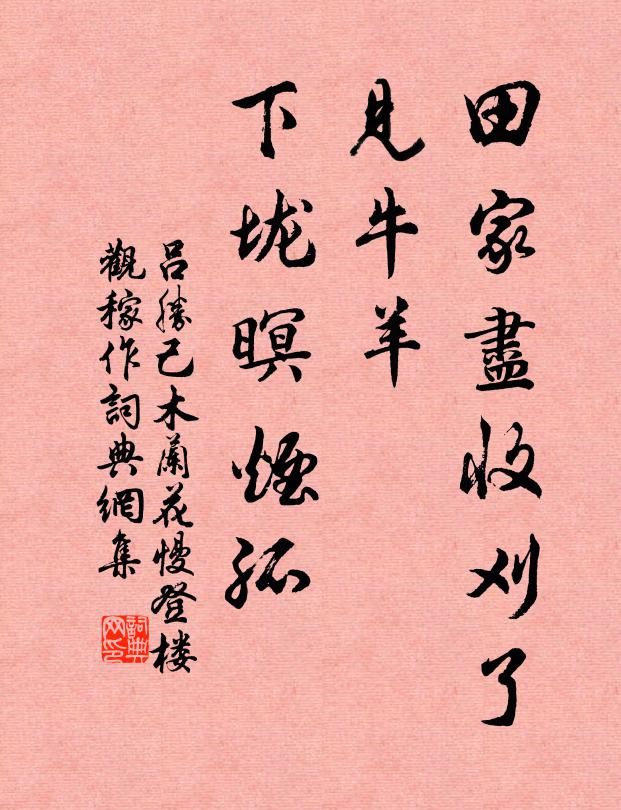 田家盡收刈了
見牛羊
下垅暝煙孤
呂勝己木蘭花慢登楼
觀稼作詞典網集
詞典网印